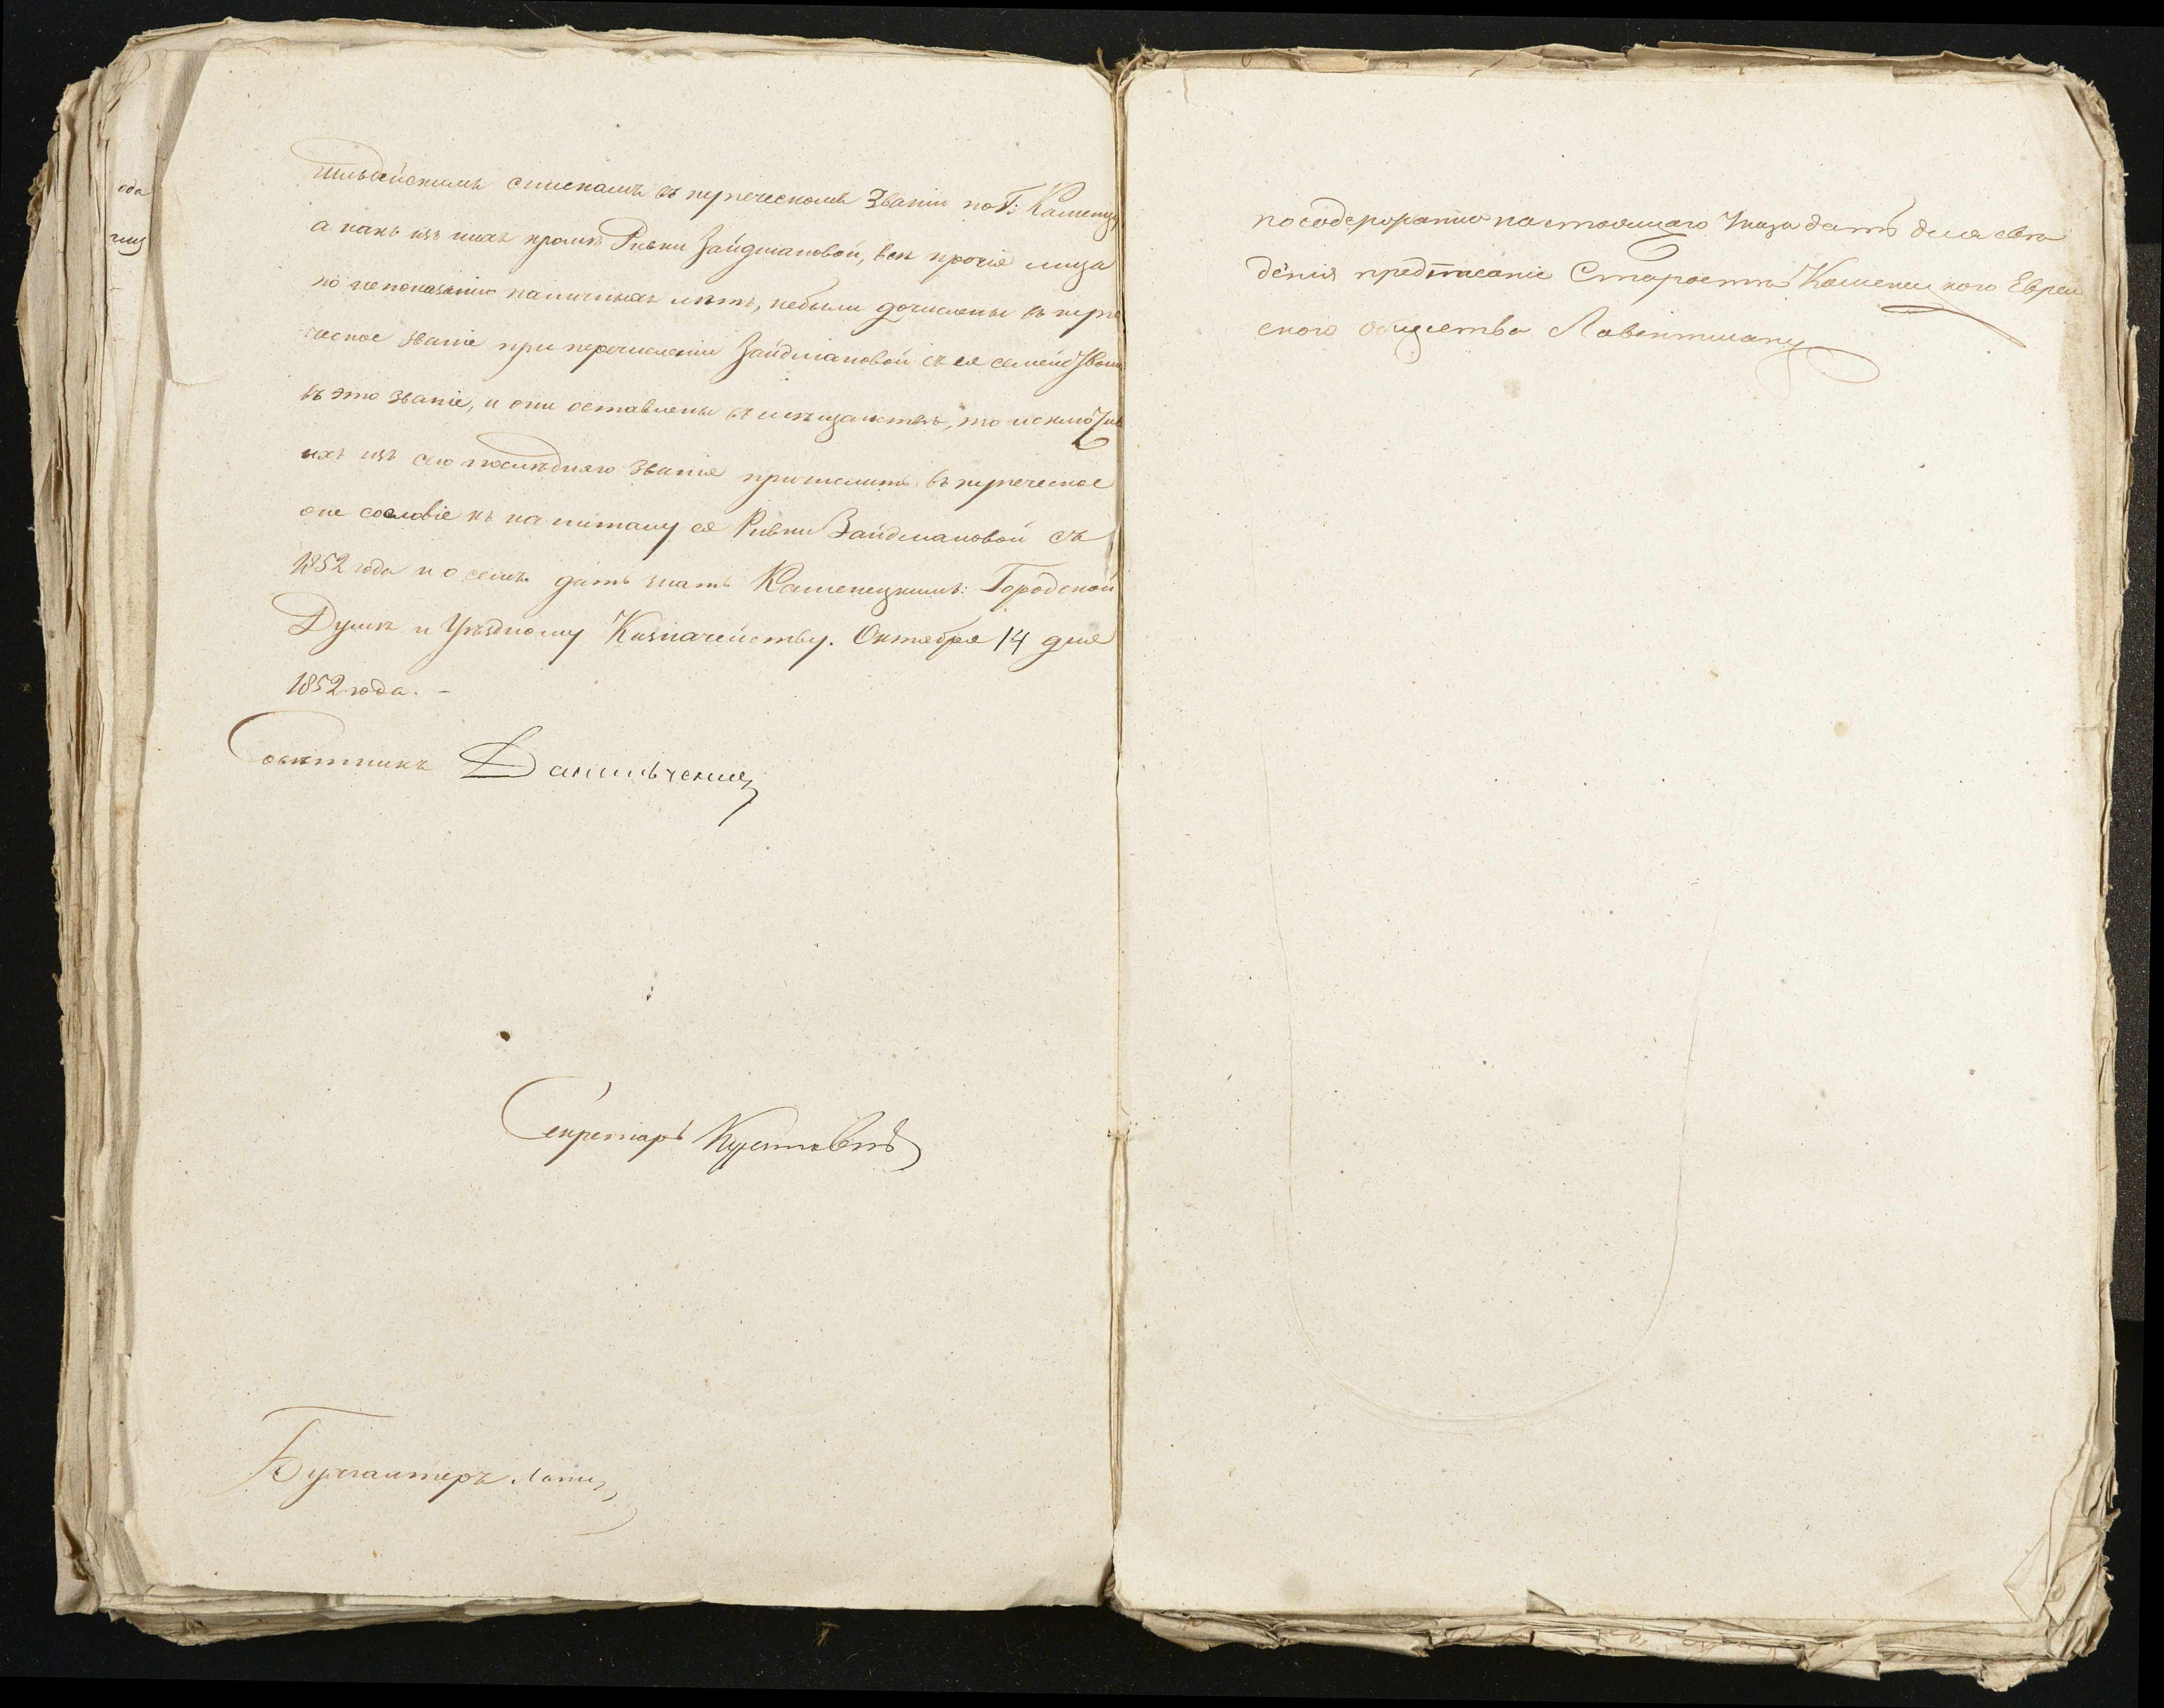 ода
гильдейскимъ спискамъ въ купеческомъ званіи по Г: Каменцу
а какъ изъ нихъ кромѣ Ривки Зайдмановой, всѣ прочіе лица
по непоказанію наличныхъ лѣтъ, небыли дочислены въ купе
ческое званіе при перечисленіи Зайдмановой съ ея семействомъ
въ это званіе, и они оставлены въ мѣщанствѣ, то исключивъ
ихъ изъ сего послѣдняго званія причислить въ купеческое
оне сословіе къ капиталу ея Ривки Зайдмановой съ
1852 года и о семъ дать знать Каменецкимъ: Городской
Думѣ и Уѣздному Казначейству. Октября 14 дня
1852 года. –
Совѣтникъ
Секретарь
Бухгалтеръ
по содержанію настоящаго Указа дать для свѣ
денія предписаніе Старостѣ Каменецкого Еврей
ского общества